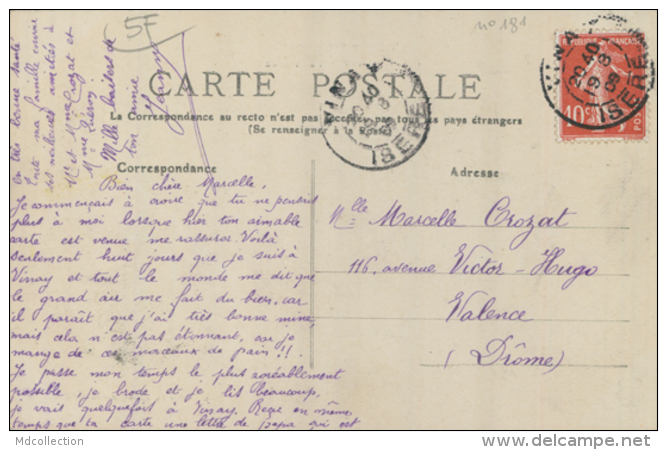 5F
n° 181
CARTE POSTALE
La Correspondance au recto n'est pas acceptée par tous les pays étrangers
(Se renseigner à la Poste)
Correspondance
Adresse
REPUBLIQUE FRANÇAISE
10
POSTES
VINAY
20 40
19 8
08
ISERE
VINAY
ISERE
Bien chère Marcelle,
Je commençais à croire que tu ne pensais
plus à moi lorsque hier ton aimable
carte est venue me rassurer. Voilà
seulement huit jours que je suis à
Vinay et tout le monde me dit que
le grand air me fait du bien, car
il paraît que j'ai très bonne mine,
mais cela n'est pas étonnant, car je
mange de ces morceaux de pain !!
Je passe mon temps le plus agréablement
possible, je brode et je lis beaucoup,
je vais quelquefois à Vinay. Reçu en même
temps que ta carte une lettre de papa qui est
en très bonne santé
Toute ma famille envoie
ses meilleures amitiés à
Mr et Mme Crozat et
Mme
Mille baisers de
ton amie
Mlle Marcelle Crozat
116, avenue Victor-Hugo
Valence
(Drôme)
Mdcollection
www.delcampe.net